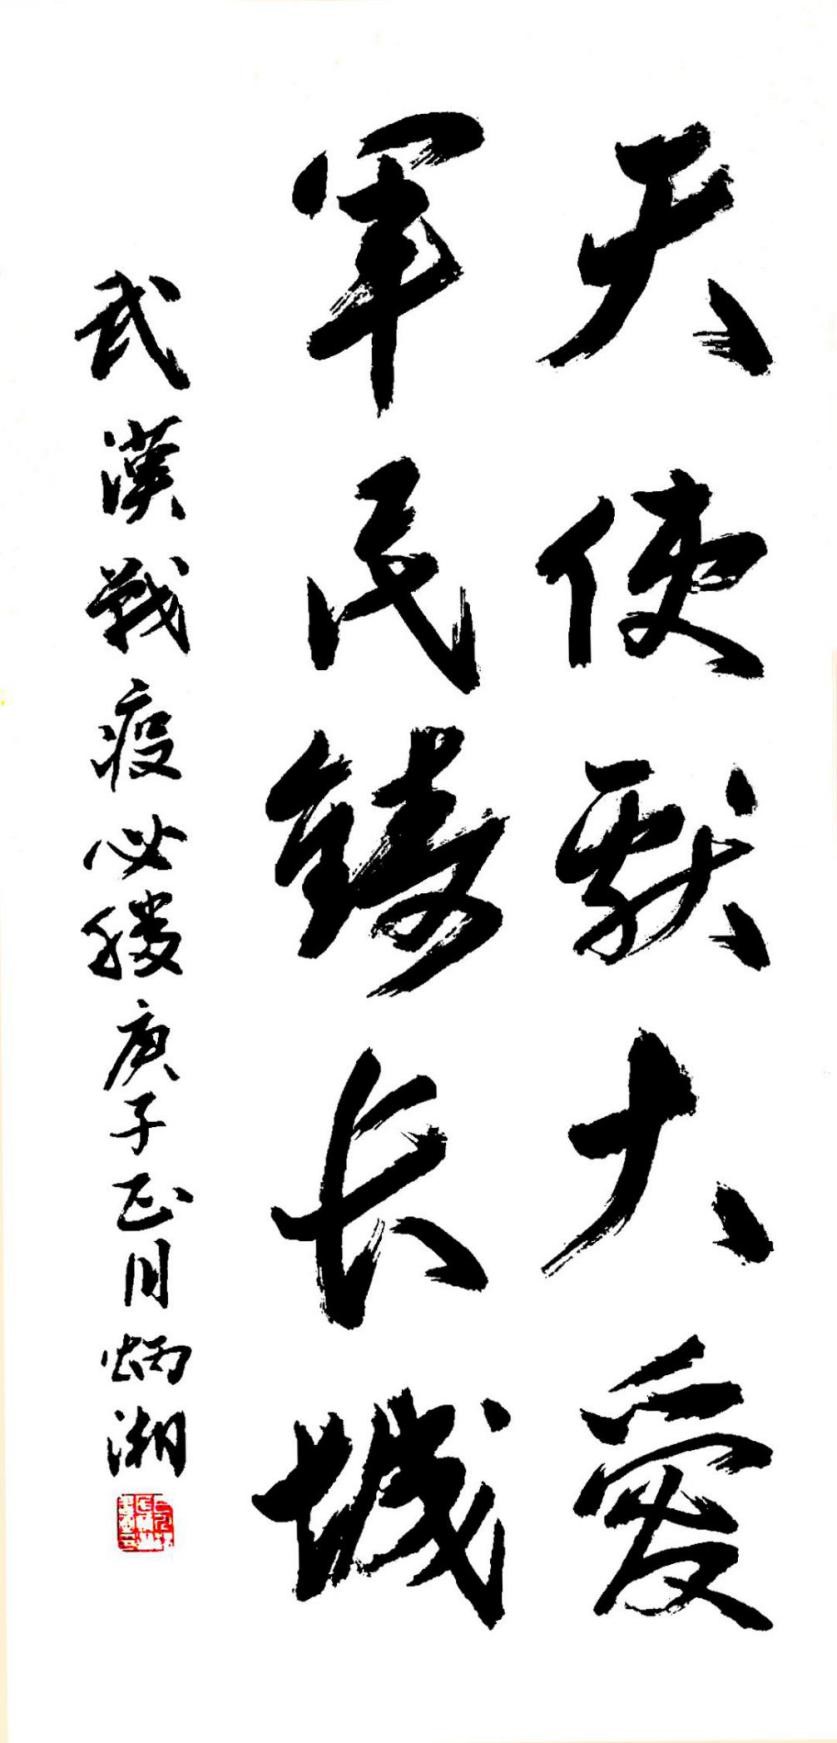 天使献大愛
軍民鑄长城
武漢戰疫必勝庚子正月炳湘